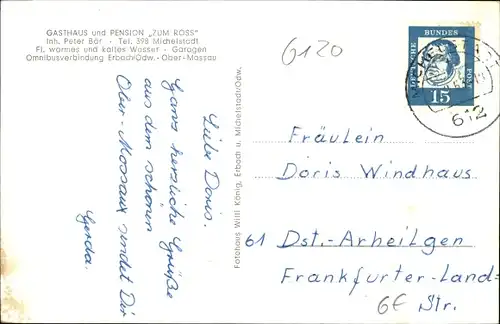 GASTHAUS und PENSION „ZUM ROSS"
Inh. Peter Bär · Tel. 398 Michelstadt
Fl. warmes und kaltes Wasser - Garagen
Omnibusverbindung Erbach/Odw. - Ober-Mossau
Liebe Doris.
Ganz herzliche Grüße
aus dem schönen
Ober-Mossaux sendet Dir
Gerda.
Fotohaus Willi König, Erbach u. Michelstadt/Odw.
6120
DEUTSCHE BUNDESPOST
15
612
Fräulein
Doris Windhaus
61 Dst.-Arheilgen
Frankfurter-Land=
Str.